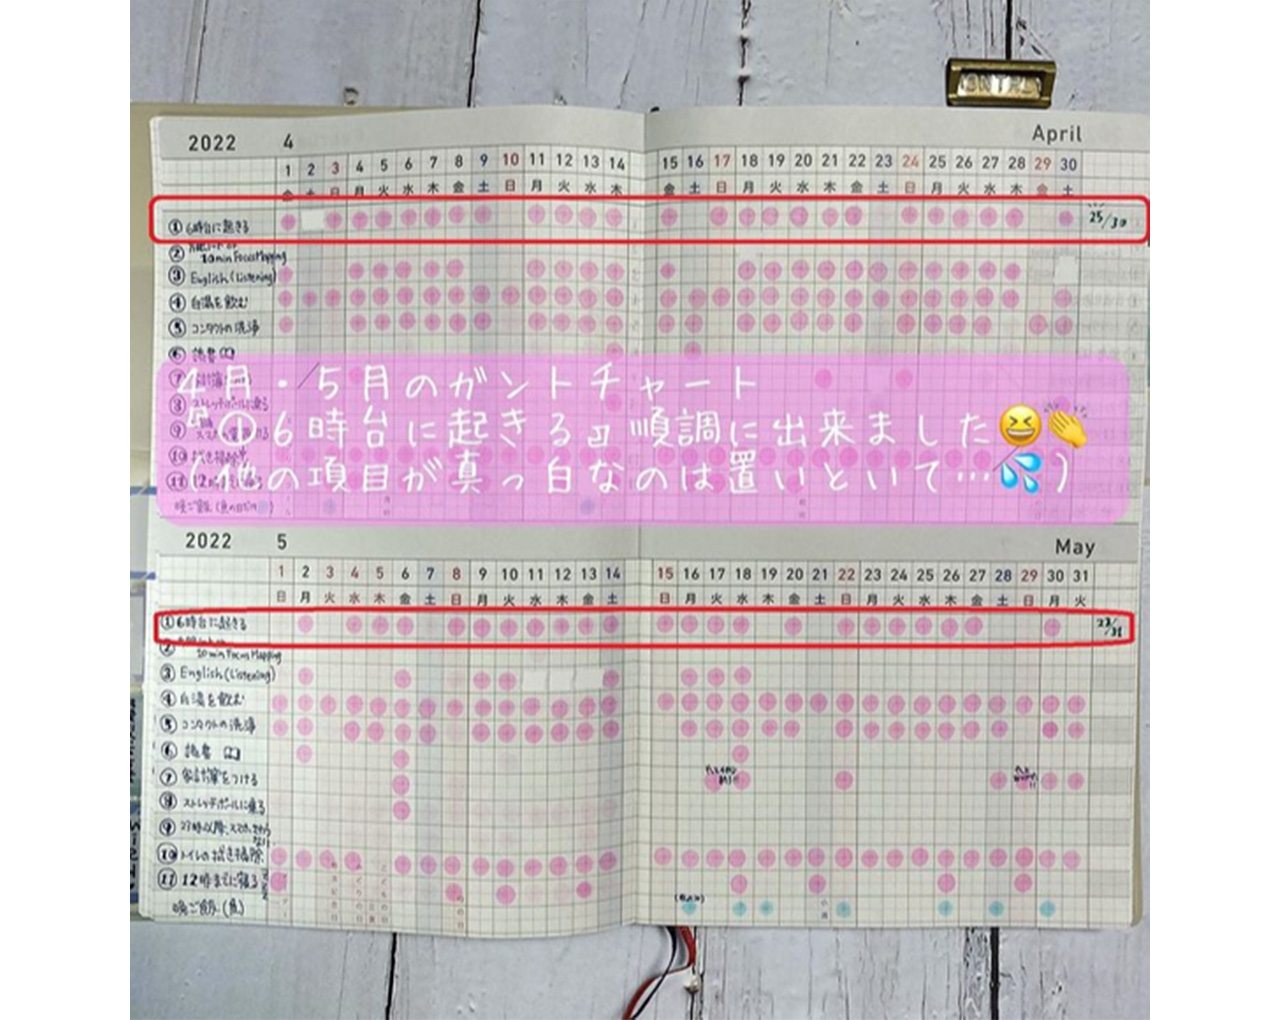 2022 4 April
1 2 3 4 5 6 7 8 9 10 11 12 13 14 15 16 17 18 19 20 21 22 23 24 25 26 27 28 29 30
金 土 日 月 火 水 木 金 土 日 月 火 水 木 金 土 日 月 火 水 木 金 土 日 月 火 水 木 金 土
①6時台に起きる 25/30
② 10min Focus Mapping
③ English (Listening)
④ 白湯を飲む
⑤ コンタクトの洗浄
⑥ 読書
4月・5月のガントチャート
『①6時台に起きる』順調に出来ました😆👏
(他の項目が真っ白なのは置いといて…💦)
⑪ 12時
晩ご飯
2022 5 May
1 2 3 4 5 6 7 8 9 10 11 12 13 14 15 16 17 18 19 20 21 22 23 24 25 26 27 28 29 30 31
日 月 火 水 木 金 土 日 月 火 水 木 金 土 日 月 火 水 木 金 土 日 月 火 水 木 金 土 日 月 火
①6時台に起きる 23/31
② 10min Focus Mapping
③ English (Listening)
④ 白湯を飲む
⑤ コンタクトの洗浄
⑥ 読書
⑦ 家計簿をつける
⑧ ストレッチポールに乗る
⑨ 23時以降、スマホ
⑩ トイレの拭き掃除
⑪ 12時までに寝る
晩ご飯(魚)